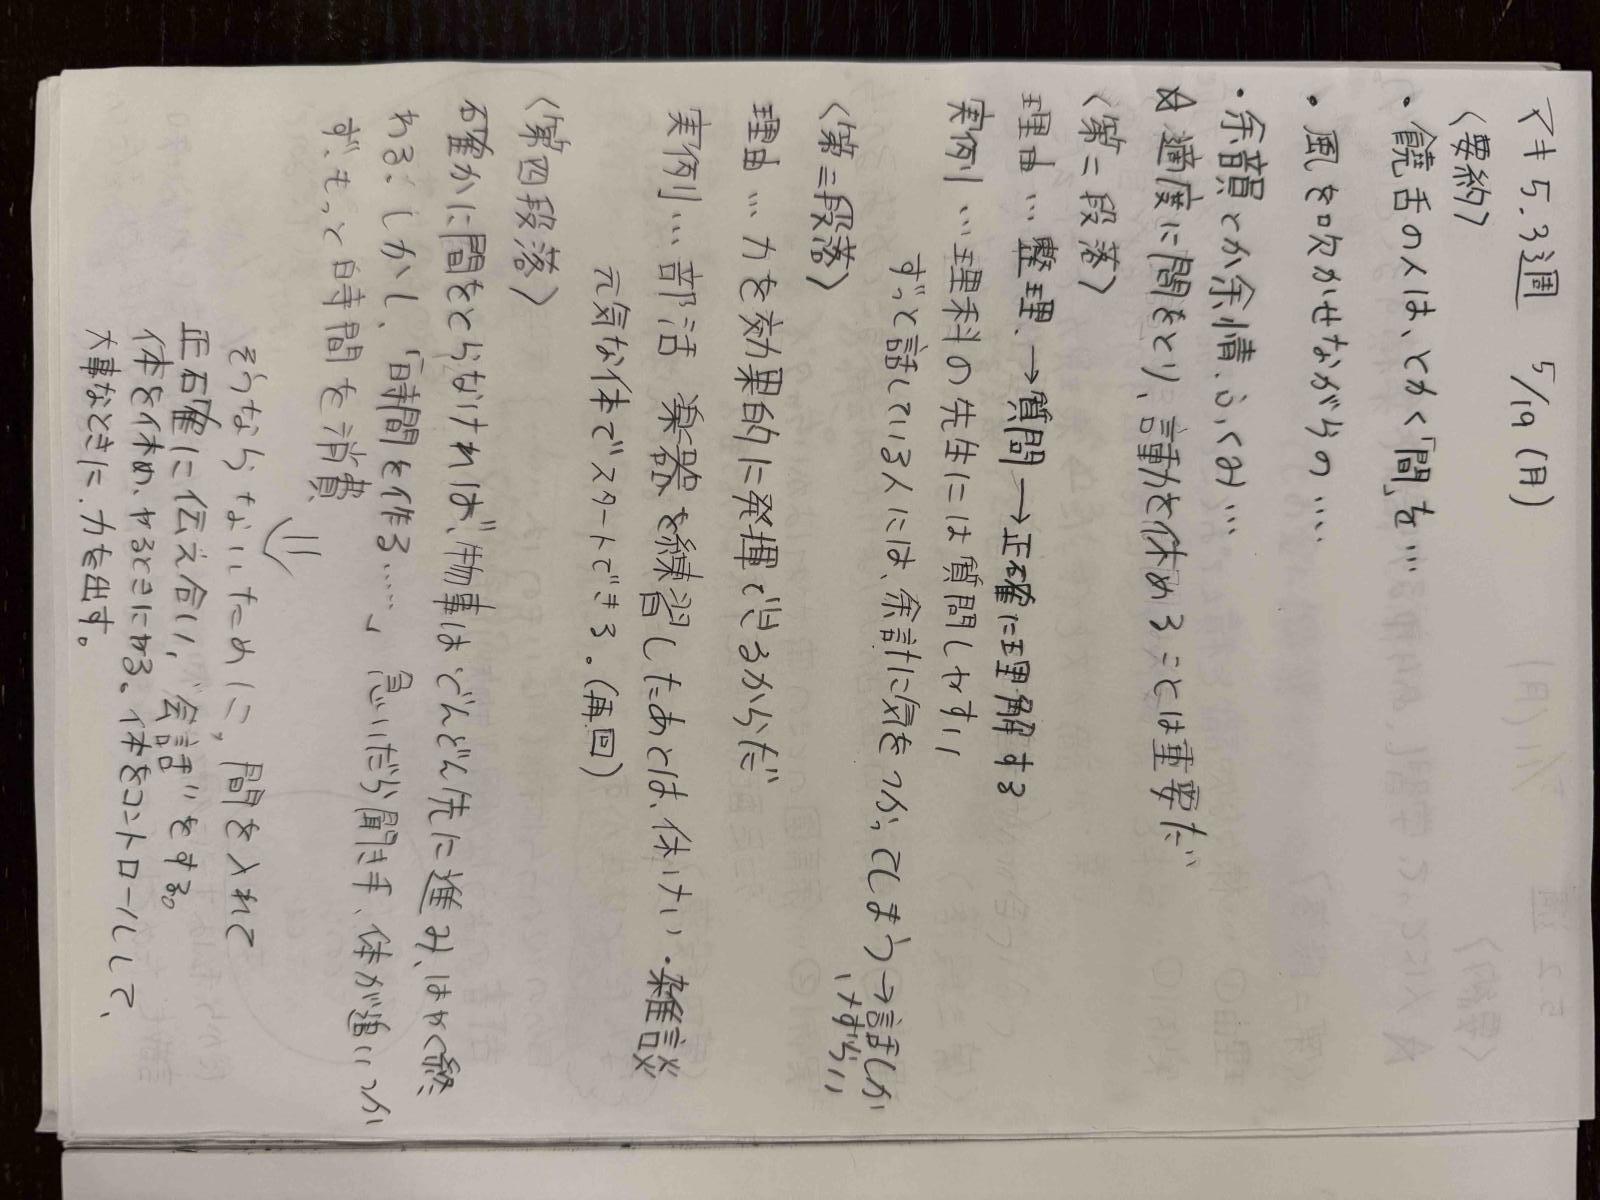 マキ5.3週 5/19(月)
〈要約〉
・饒舌の人は、とかく「間」を…
・風を吹かせながらの…
・余韻とか余情、ふくみ…
☆ 適度に間をとり、言動を休めることは重要だ
〈第二段落〉
理由…整理、→質問→正確に理解する
実例…理科の先生には質問しやすい
ずっと話している人には、余計に気をつかってしまう→話しかけずらい
〈第三段落〉
理由…力を効果的に発揮できるからだ
実例…部活 楽器を練習したあとは、休けい・雑談
元気な体でスタートできる。(再回)
〈第四段落〉
確かに間をとらなければ、物事はどんどん先に進み、はやく終
れる。しかし、「時間を作る……」急いだら聞き手、体が追いつか
ず、もっと時間を消費
⇓
そうならないために、間を入れて
正確に伝え合い、"会話"をする。
体を休め、やるときにやる。体をコントロールして、
大事なときに、力を出す。